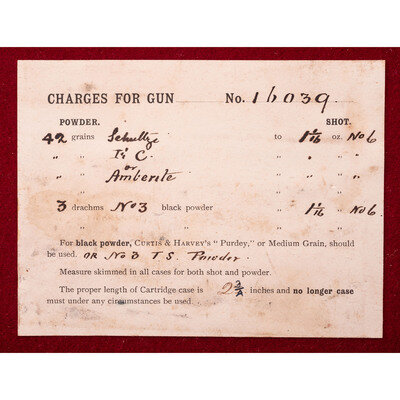 CHARGES FOR GUN No. 16039.
POWDER. SHOT.
42 grains Schultze to 1 1/16 oz. No 6
" " E C " " " "
or
" " Amberite " " " "
3 drachms No 3 black powder 1 1/16 " No 6.
For black powder, CURTIS & HARVEY'S "Purdey," or Medium Grain, should
be used. OR No 3 T S. Powder.
Measure skimmed in all cases for both shot and powder.
The proper length of Cartridge case is 2 3/4 inches and no longer case
must under any circumstances be used.